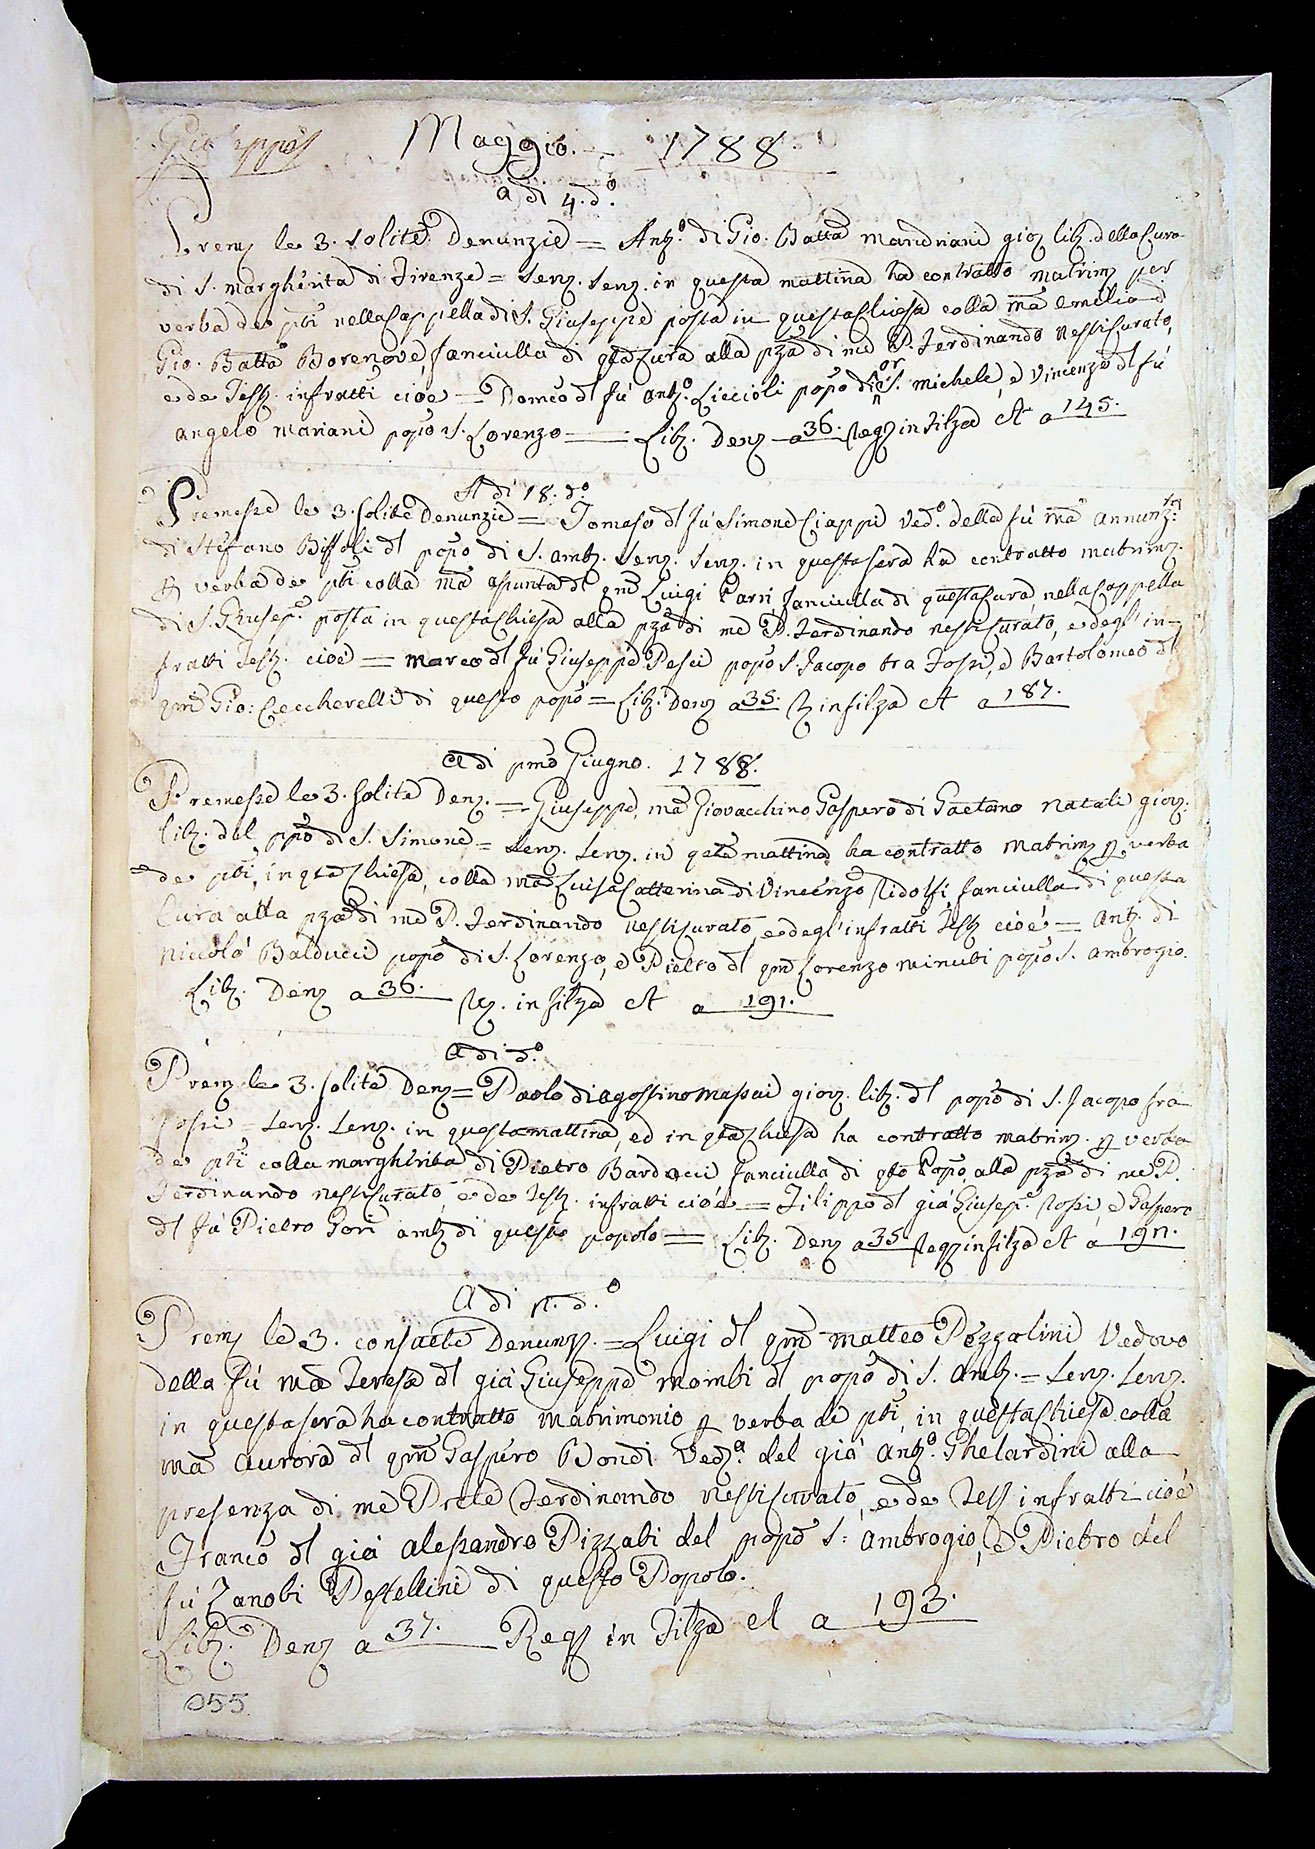 Maggio. — 1788.
a dì 4. d.º
Prem. le 3. solite Denunzie = Ant.º di Gio: Batta Mandriani gio. lib. della Cura
di S. Margherita di Firenze = Serv. Serv. in questa mattina ha contratto matrim. per
verba de pñti nella Cappella di S. Giuseppe posta in questa Chiesa colla Mª Emilia d
Gio. Batta fanciulla di qta Cura, alla pza di me P. Ferdinando Nesti Curato,
e de Test. infratti cioè = Romeo dl fù Ant.º Liccioli popo di S. Michele, e Vincenzo dl fù
Angelo Mariani popo S. Lorenzo = Lib. Denz a 36. Reg. in Filza A a 145.
A dì 18. d.º
Premesse le 3. solite Denunzie = Tomaso dl fù Simone Ciappi Ved.º della fù Mª Annunz.ta
di Stefano dl popo di S. Amb. Serv. Serv. in questa sera ha contratto matrim.
P verba de pñti colla Mª Asunta dl qm Luigi Parri fanciulla di questa Cura, nella Cappella
di S. Giusep.e posta in questa Chiesa alla pza di me P. Ferdinando Nesti Curato, e degl'in-
fratti Test. cioè = Marco dl fù Giuseppe Pesci popo S. Jacopo tra Fossi, e Bartolomeo dl
qm Gio: Ceccherelli di questo popo = Lib. Denz a 35. R in filza A a 187.
A dì pmo Giugno. 1788.
Premesse le 3. solite Denz. = Giuseppe, Mª Giovacchino Gaspero di Gaetano Natali giov.
lib. del ppo di S. Simone = Serv. Serv. in qta mattina ha contratto matrim P verba
de pñti, in qta Chiesa, colla Mª Luisa Catterina di Vincenzo Ridolfi, fanciulla di questa
Cura alla pza di me P. Ferdinando Nesti Curato, e degl'infratti Test cioè = Ant. di
Niccolò Balducci popo di S. Lorenzo, e Pietro dl qm Lorenzo Minuti popo S. Ambrogio.
Lib. Denz a 36. R. in filza A a 191.
A dì d.º
Prem le 3. solite Denz = Paolo di Agostino Massai giov. lib. dl popo di S. Jacopo fra
Fossi = Serv. Serv. in questa mattina, ed in qta Chiesa ha contratto matrim. P verba
de pñti colla Margherita di Pietro Barducci fanciulla di qto Popo, alla pza di me P.
Ferdinando Nesti Curato, e de Test. infratti cioè = Filippo dl già Giusep.e Rossi, e Gaspero
dl fù Pietro Gori amb. di questo popolo = Lib. Denz a 35 Reg in filza A a
A dì d.º
Prem le 3. consuete Denunz. = Luigi dl qm Matteo Pozzolini Vedovo
della fù Mª Teresa dl già Giuseppe Mombi dl popo di S. Amb. = Serv. Serv.
in questa sera ha contratto matrimonio P verba de pñti, in questa Chiesa colla
Mª Aurora dl qm Gaspero Bondi Ved.ª del già Ant.º Ghelardini alla
presenza di me Prete Ferdinando Nesti Curato, e de Test infratti cioè
Franco dl già Alessandro Pizzati del popo S. Ambrogio, e Pietro del
fù Zanobi Pestellini di questo Popolo.
Lib. Denz a 37. Reg in Filza A a 193.
055.